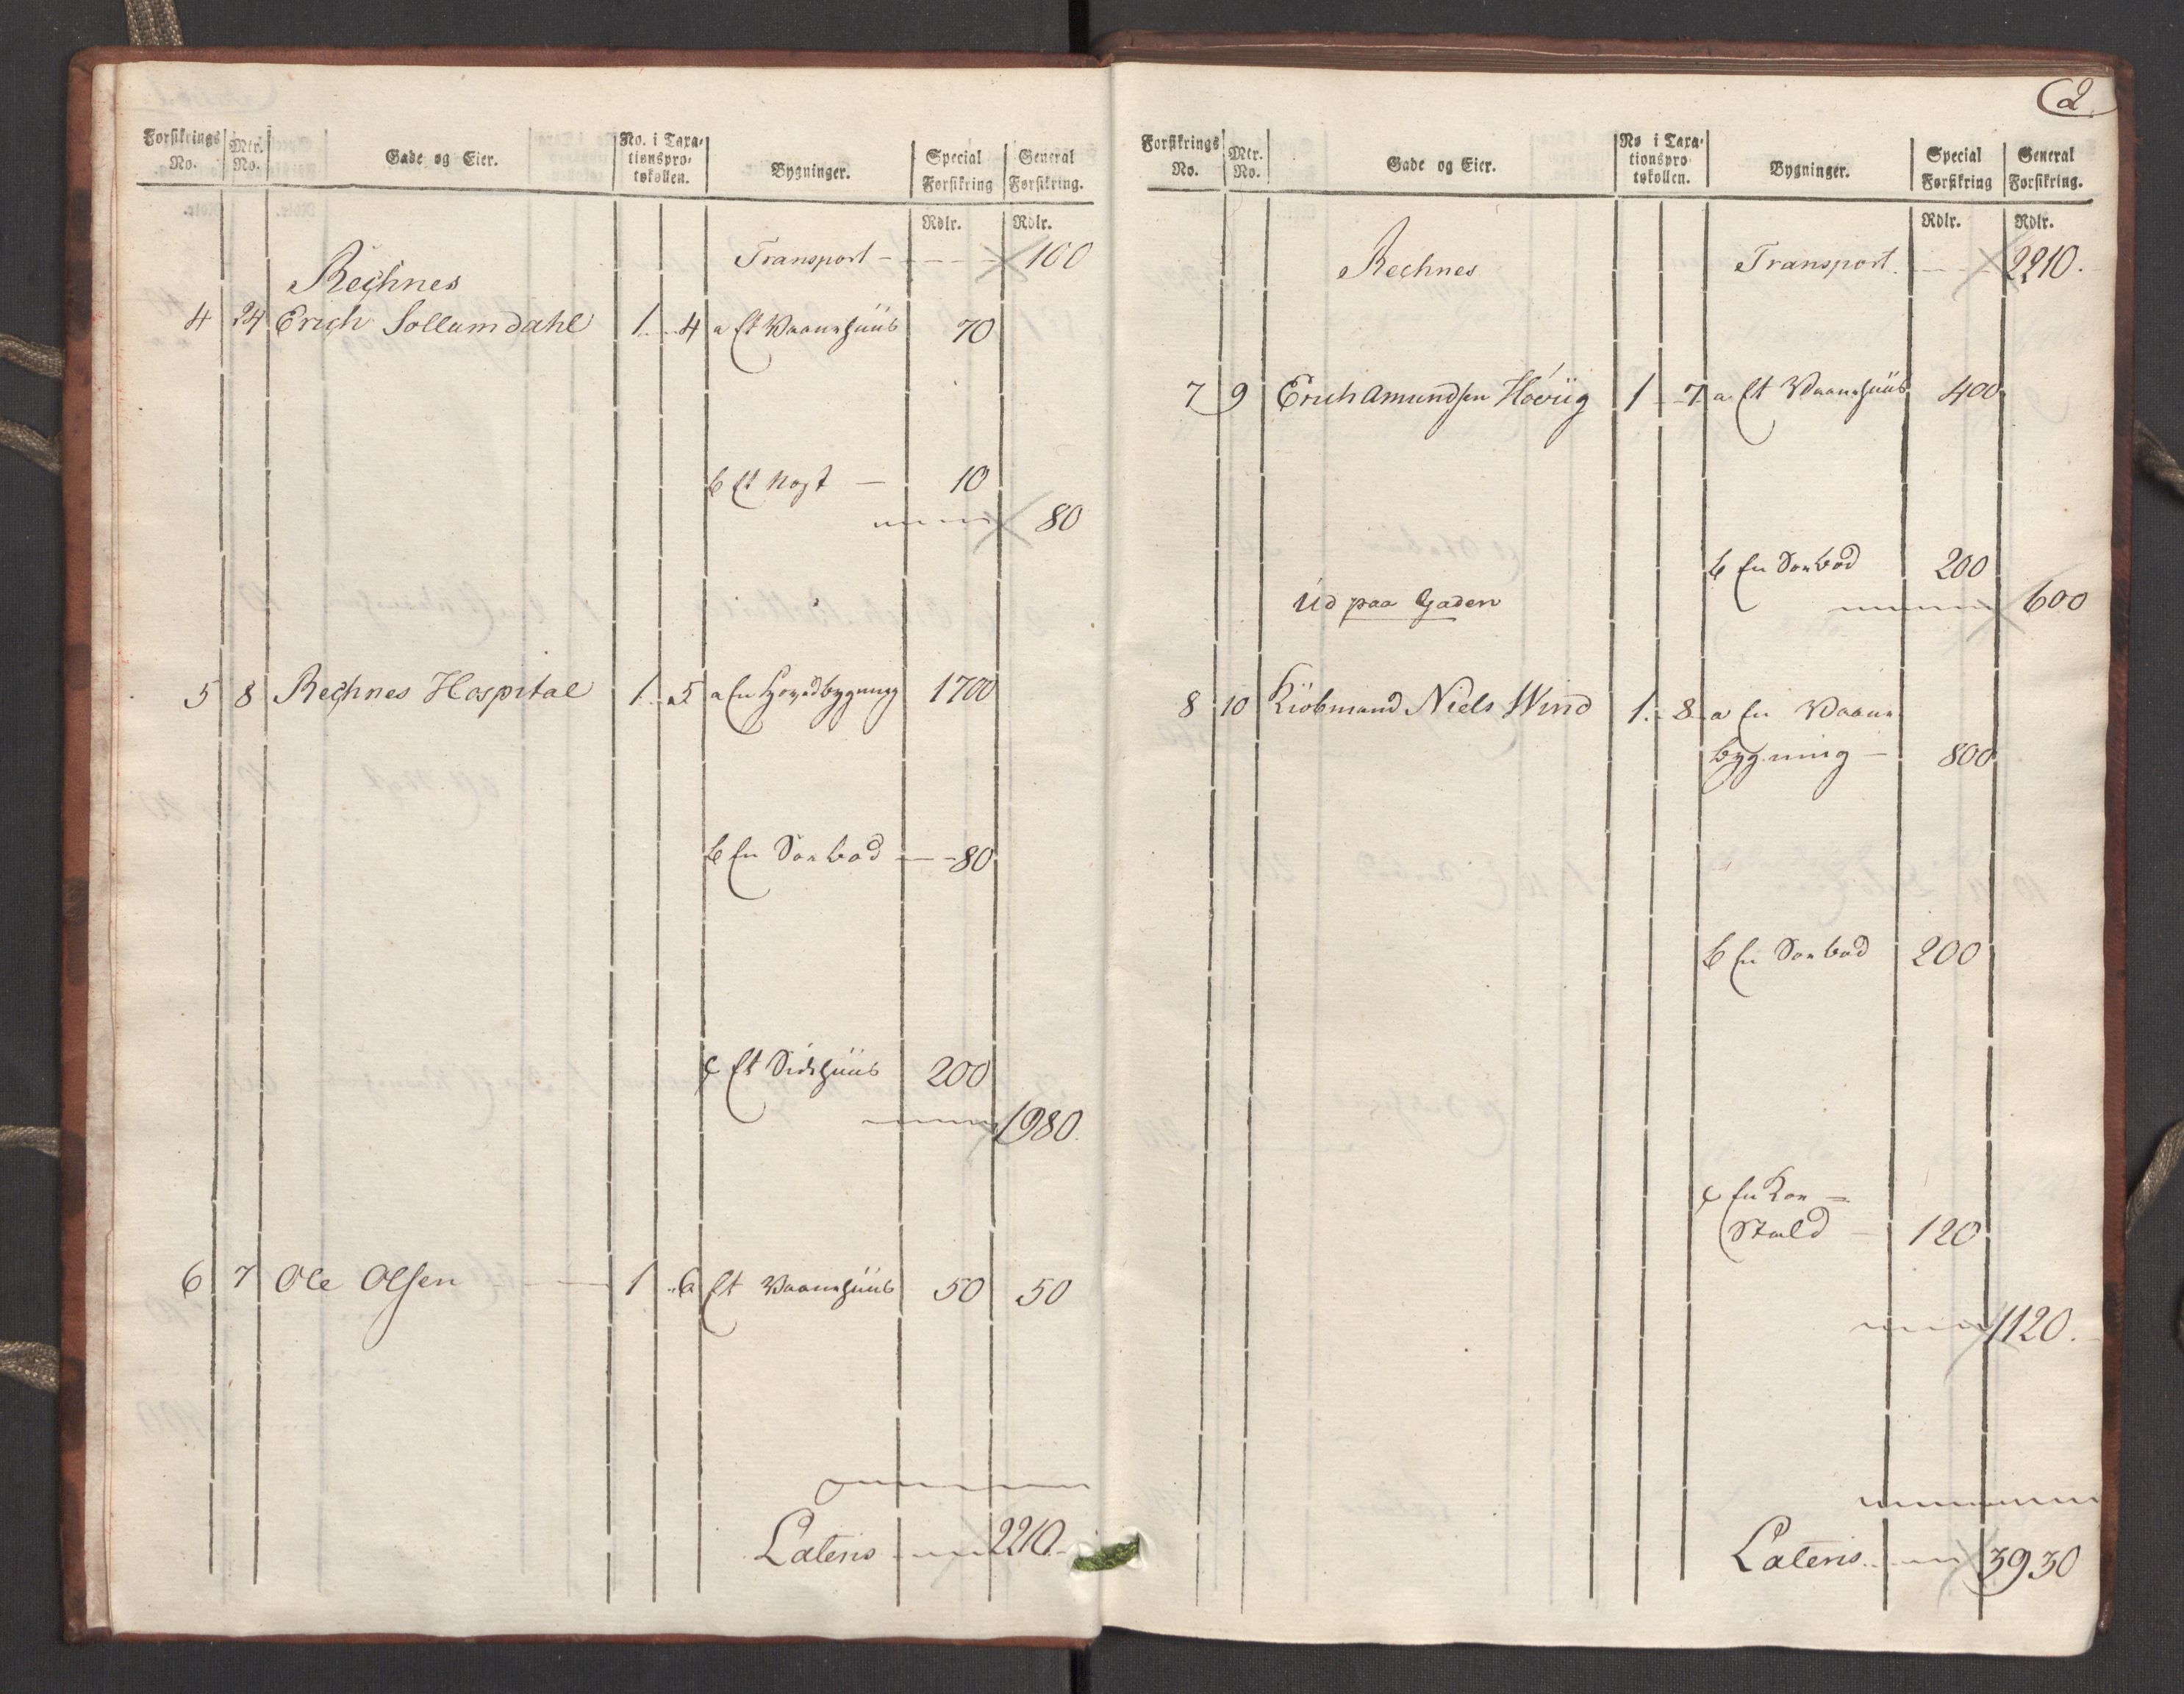 Forsikrings No. Mtr. No. Gade og Eier. No. i Taxationsprotokollen. Bygninger. Special Forsikring General Forsikring.
Rdlr. Rdlr.
Transport - 100
Rechnes
4 24 Erich Sollumdahl 1 4 a Et Vaanehuus 70
b Et Nost 10
80
5 8 Rechnes Hospital 1 5 a En Hovedbygning 1700
b En Søebod 80
c Et Sidehuus 200
1980.
6 7 Ole Olsen 1 6 Et Vaanehuus 50 50
Lateris 2210.
2.
Forsikrings No. Mtr. No. Gade og Eier. No i Taxationsprotokollen. Bygninger. Special Forsikring General Forsikring.
Rdlr. Rdlr.
Rechnes Transport. 2210.
7 9 Erich Amundsen Høviig 1 7 a Et Vaanehuus 400
b En Søebod 200
Ud paa Gaden 600
8 10 Kiøbmand Niels Wind 1. 8 a En Vaane
bygning - 800
b En Søebod 200
c En Koe =
Stald 120
1120.
Lateris 3930